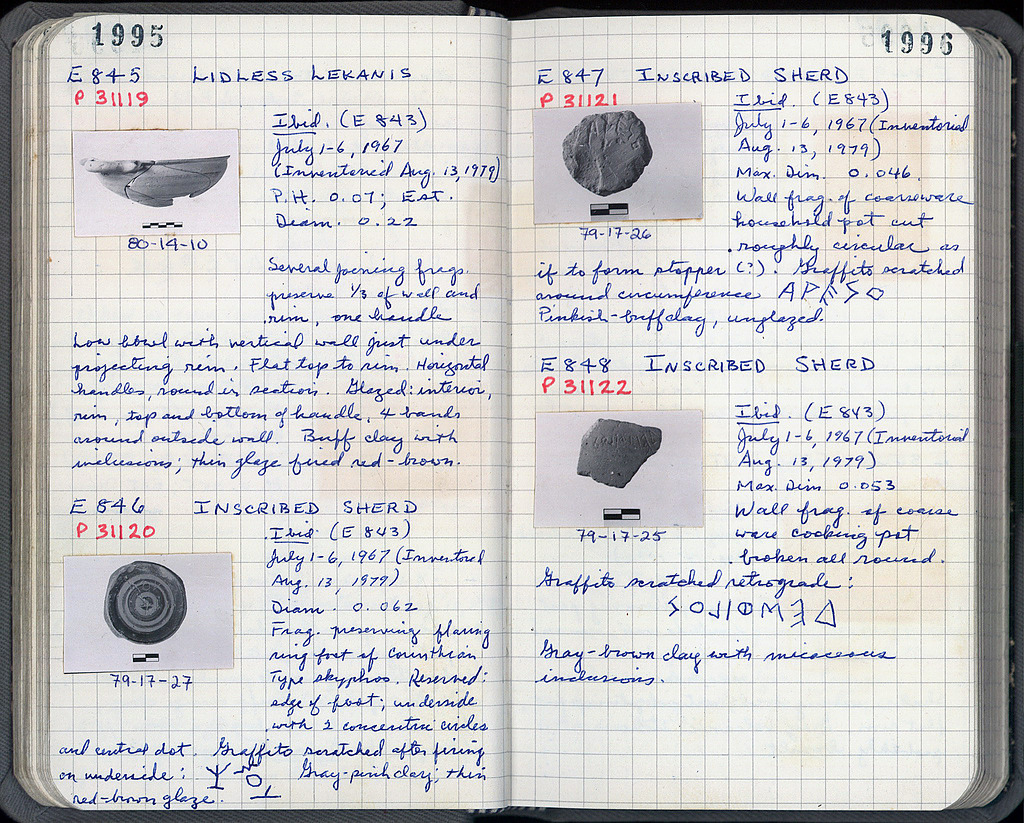 1995
E 845 LIDLESS LEKANIS
P 31119
Ibid. (E 843)
July 1-6, 1967
(Inventoried Aug. 13, 1979)
P.H. 0.07; Est.
Diam. 0.22
80-14-10
Several joining frags.
preserve 1/3 of wall and
rim, one handle
Low bowl with vertical wall just under
projecting rim. Flat top to rim. Horizontal
handles, round in section. Glazed: interior,
rim, top and bottom of handle, 4 bands
around outside wall. Buff clay with
inclusions; thin glaze fired red-brown.
E 846 INSCRIBED SHERD
P 31120
Ibid (E 843)
July 1-6, 1967 (Inventoried
Aug. 13, 1979)
Diam. 0.062
Frag. preserving flaring
ring foot of Corinthian
Type skyphos. Reserved:
edge of foot; underside
with 2 concentric circles
79-17-27
and central dot. Graffito scratched after firing
on underside: Gray-pink clay; thin
red-brown glaze.
1996
E 847 INSCRIBED SHERD
P 31121
Ibid. (E 843)
July 1-6, 1967 (Inventoried
Aug. 13, 1979)
Max. Dim. 0.046.
Wall frag. of coarseware
household pot cut
roughly circular as
79-17-26
if to form stopper (?). Graffito scratched
around circumference
Pinkish-buff clay, unglazed.
E 848 INSCRIBED SHERD
P 31122
Ibid. (E 843)
July 1-6, 1967 (Inventoried
Aug. 13, 1979)
Max. Dim 0.053
Wall frag. of coarse
ware cooking pot
broken all round.
79-17-25
Graffito scratched retrograde:
Gray-brown clay with micaceous
inclusions.